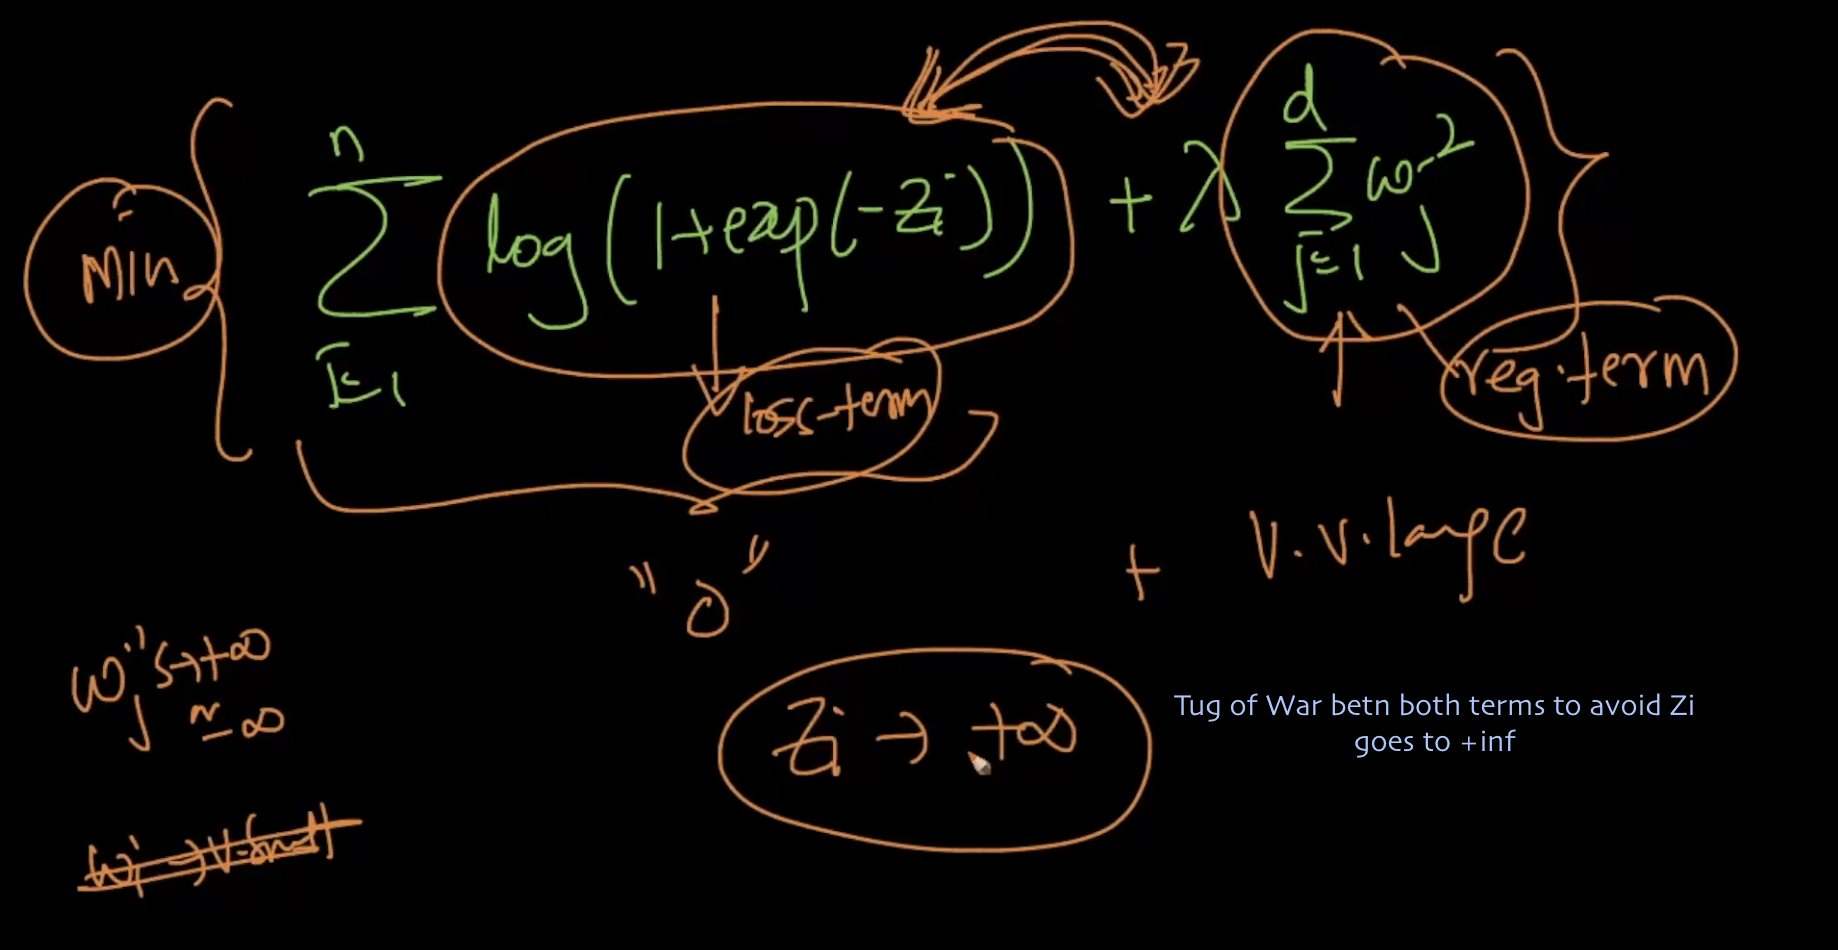 Min { n Σ i=1 log(1+exp(-Zi)) + λ d Σ j=1 wj²
loss-term
reg.term
"0" + V.V.large
wj's → +∞
~ -∞
Zi → +∞
Tug of War betn both terms to avoid Zi
goes to +inf